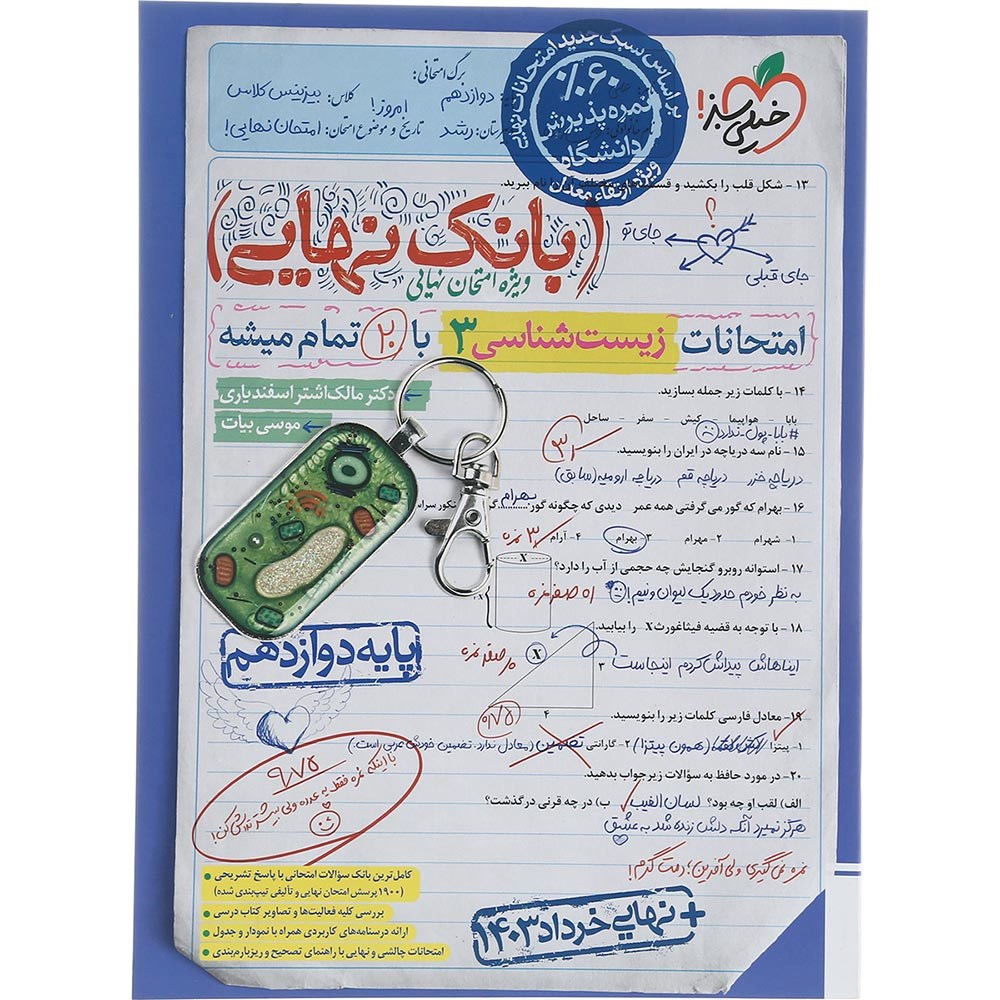 خیلی سبز!
بر اساس سبک جدید امتحانات نهایی
۶۰٪
نمره پذیرش
دانشگاه
ویژه ارتقاء معدل
برگ امتحانی:
دوازدهم کلاس: بیزینس کلاس
امروز!
رشد تاریخ و موضوع امتحان: امتحان نهایی!
۱۳- شکل قلب را بکشید و نام ببرید.
؟
جای تو
جای قبلی
(بانک نهایی)
ویژه امتحان نهایی
امتحانات زیست‌شناسی ۳ با ۲۰ تمام میشه
دکتر مالک‌اشتر اسفندیاری
موسی بیات
۱۴- با کلمات زیر جمله بسازید.
بابا - هواپیما - کیش - سفر - ساحل
#بابا-پول-ندارد
۱۵- نام سه دریاچه در ایران را بنویسید.
دریاچه خزر دریاچه قم دریاچه ارومیه (سابق)
۱۶- بهرام که گور می‌گرفتی همه عمر دیدی که چگونه گور بهرام
۱- شهرام ۲- مهرام ۳- بهرام ۴- آرام
۱۷- استوانه روبرو گنجایش چه حجمی از آب را دارد؟
X
به نظر خودم حدود یک لیوان و نیم!
۱۸- با توجه به قضیه فیثاغورث X را بیابید.
ایناهاش پیداش کردم اینجاست
X
۳
۴
۱۹- معادل فارسی کلمات زیر را بنویسید.
۱- پیتزا (همون پیتزا) ۲- گارانتی تضمین (معادل ندارد. تضمین خودش عربی است.)
۲۰- در مورد حافظ به سؤالات زیر جواب بدهید.
الف) لقب او چه بود؟ لسان الغیب ب) در چه قرنی درگذشت؟
هرگز نمیرد آنکه دلش زنده شد به عشق
نمره نمی‌گیری ولی آفرین؛ دمت گرم!
پایه دوازدهم
۹٫۷۵
با اینکه نمره فقط یه عدده ولی بیشتر تلاش کن!
کامل‌ترین بانک سؤالات امتحانی با پاسخ تشریحی
(۱۹۰۰ پرسش امتحان نهایی و تألیفی تیپ‌بندی شده)
بررسی کلیه فعالیت‌ها و تصاویر کتاب درسی
ارائه درسنامه‌های کاربردی همراه با نمودار و جدول
امتحانات چالشی و نهایی با راهنمای تصحیح و ریزبارم‌بندی
+ نهایی خرداد ۱۴۰۳